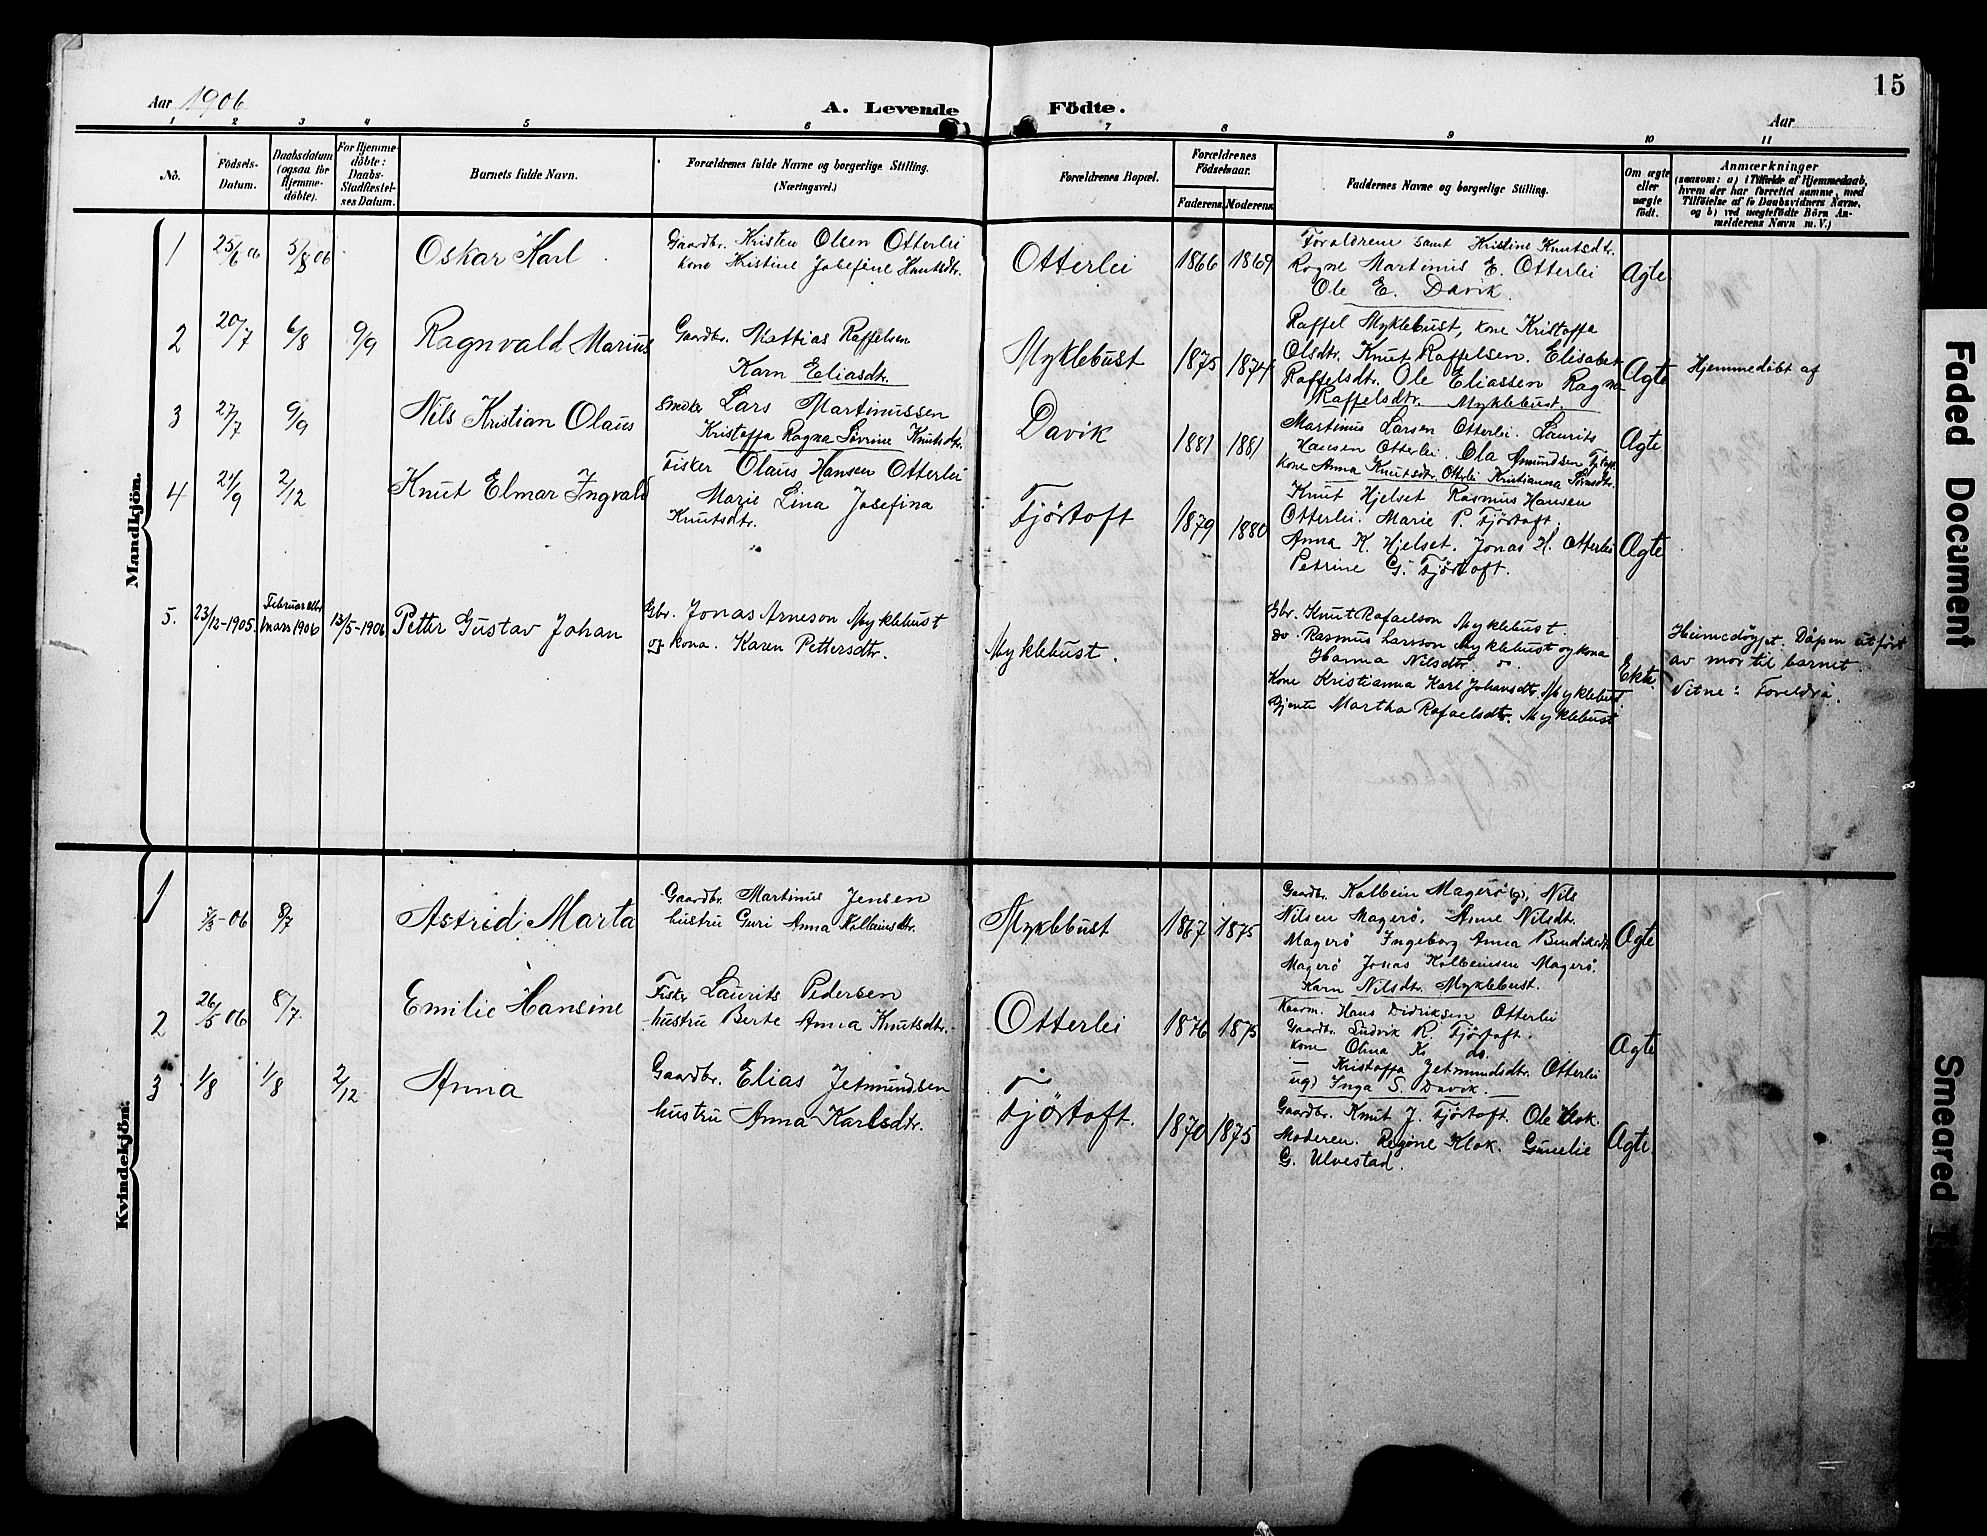 15
Aar 1906
A. Levende Födte.
Aar
1 2 3 4 5 6 7 8 9 10 11
No.
Födsels-
Datum.
Daabsdatum
(ogsaa for
Hjemme-
döbte).
For Hjemme-
döbte:
Daabs-
Stadfæstel-
ses Datum.
Barnets fulde Navn.
Forældrenes fulde Navne og borgerlige Stilling.
(Næringsvei.)
Forældrenes Bopæl.
Forældrenes
Födselsaar.
Faderens. Moderens.
Faddernes Navne og borgerlige Stilling.
Om ægte
eller
uægte
födt.
Anmærkninger
(saasom: a) i Tilfælde af Hjemmedaab,
hvem der har forrettet samme, med
Tilföielse af to Daabsvidners Navne,
og b) ved uægtefödte Börn An-
melderens Navn m. V.)
Mandkjön.
1 25/6 06 5/8 06 Oskar Karl
Gaardbr. Kristen Olsen Otterlei
kone Kristine Josefine Knutsdtr.
Otterlei 1866 1869
Foraldrene samt Kristine Knutsdtr.
Ragne Martinus E. Otterlei
Ole E. Davik.
Agte
2 20/7 6/8 9/9 Ragnvald Marius
Gaardbr. Mattias Raffelsen
Karn Eliasdtr.
Myklebust 1875 1874
Raffel Myklebust, kone Kristoffa
Olsdtr. Knut Raffelsen. Elisabet
Raffelsdtr. Ole Eliassen Ragna
Raffelsdtr. Myklebust.
Agte Hjemmedöbt af
3 27/7 9/9 Nils Kristian Olaus
Smeker Lars Martinussen
Kristoffa Ragna Sevrine Knutsdtr.
Davik 1881 1881
Martinus Larsen Otterlei. Laurits
Hansen Otterlei. Ola Amundsen
kone Anna Knutsdtr. Otterlei Kristianna
Agte
4 21/9 2/12 Knut Elmar Ingvald
Fisker Olaus Hansen Otterlei
Marie Lina Josefina
Knutsdtr.
Fjörtoft 1879 1880
Knut Hjelset Rasmus Hansen
Otterlei. Marie P. Fjörtoft.
Anna K. Hjelset. Jonas H. Otterlei
Petrine G. Fjörtoft.
Agte
5. 23/12-1905. Februar eller
mars 1906 13/5-1906 Petter Gustav Johan
Gbr. Jonas Arneson Myklebust
og kona. Karen Pettersdtr.
Myklebust.
Gbr. Knut Rafaelson Myklebust.
do. Rasmus Larsson Myklebust og kona
Hanna Nilsdtr. do.
Kone Kristianna Karl Johansdtr. Myklebust.
Gjente Martha Rafaelsdtr. Myklebust
Ekte.
Heimedøypt. Dåpen utført
av mor til barnet.
Vitne: Foreldra.
Kvindekjön.
1 7/3-06 8/7 Astrid Marta
Gaardbr. Martinus Jensen
hustru Guri Anna Kolbeinsdtr.
Myklebust 1867 1875
Gaardbr. Kolbein Magerö, Nils
Nilsen Magerö. Anne Nilsdtr.
Magerö Ingeborg Anna Bendiksdtr.
Magerö Jonas Kolbeinsen Magerö.
Karn Nilsdtr. Myklebust.
Agte
2 26/5 06 8/7. Emilie Hansine
Fisker Laurits Pedersen
hustru Berte Anna Knutsdtr.
Otterlei 1876 1875
Kaarm. Hans Didriksen Otterlei
Gaardbr. Ludvik R. Fjörtoft.
kone Olina K. do.
— Kristoffa Jetmundsdtr. Otterlei
ug) Inga S. Davik.
Agte
3 1/8 1/8 2/12 Anna
Gaardbr. Elias Jetmundsen
hustru Anna Karlsdtr.
Fjörtoft. 1870 1875
Gaardbr. Knut J. Fjörtoft. Ole Klok.
Moderen. Regine Klok. Gurelie
G. Ulvestad.
Agte.
Faded Document
Smeared